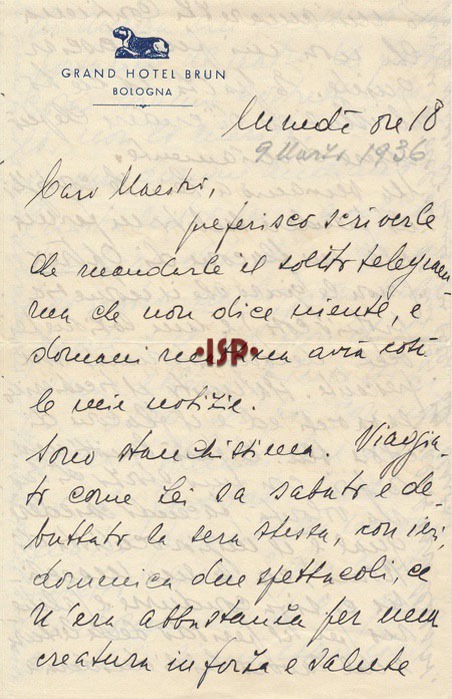 GRAND HOTEL BRUN
BOLOGNA
Lunedì ore 18
9 Marzo 1936
Caro Maestro,
preferisco scriverle
che mandarle il solito telegram-
ma che non dice niente, e
domani mattina avrà così
·ISP·
le mie notizie.
Sono stanchissima. Viaggia-
to come Lei sa sabato e de-
buttato la sera stessa, con ieri,
domenica due spettacoli, ce
n'era abbastanza per una
creatura in forza e salute